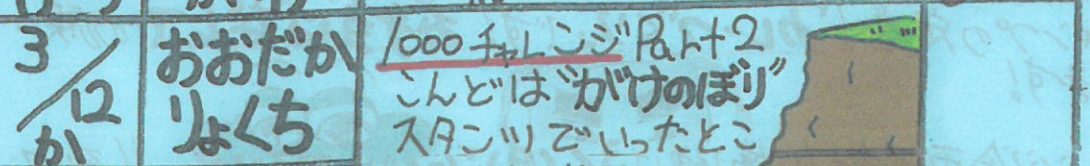 3/12
か
おおだか
りょくち
1000チャレンジPart2
こんどは"がけのぼり"
スタンツでいったとこ